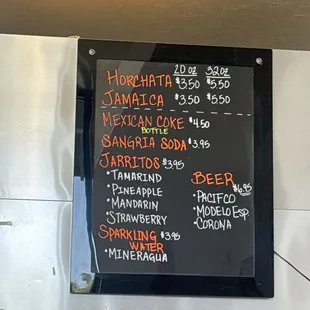 20 oz 32 oz
HORCHATA $3.50 $5.50
JAMAICA $3.50 $5.50
MEXICAN COKE $4.50
BOTTLE
SANGRIA SODA $3.95
JARRITOS $3.95
• TAMARIND
• PINEAPPLE
• MANDARIN
• STRAWBERRY
SPARKLING WATER $3.95
• MINERAGUA
BEER
$6.95
• PACIFCO
• MODELO ESP
• CORONA